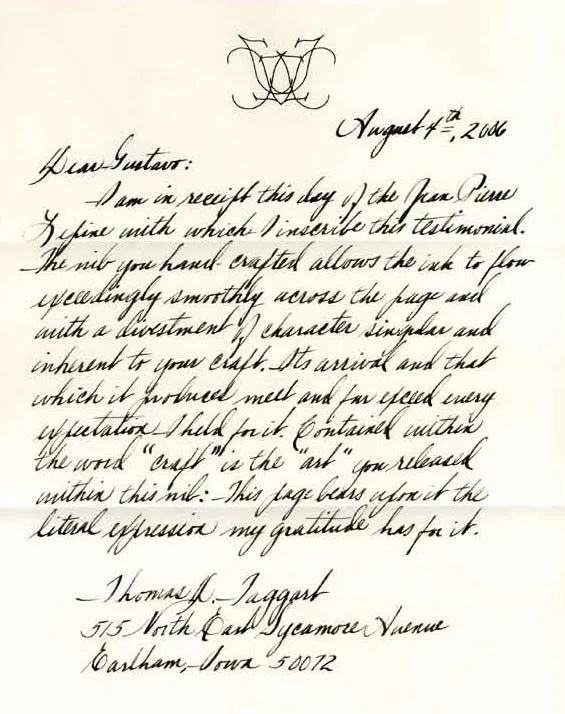 August 4th, 2006
Dear Gustavo:
I am in receipt this day of the Jean Pierre
Lépine with which I inscribe this testimonial.
The nib you hand-crafted allows the ink to flow
exceedingly smoothly across the page and
with a divestment of character singular and
inherent to your craft. Its arrival and that
which it produces meet and far exceed every
expectation I held for it. Contained within
the word "craft" is the "art" you released
within this nib: This page bears upon it the
literal expression my gratitude has for it.
Thomas D. Taggart
515 North East Sycamore Avenue
Earlham, Iowa 50072